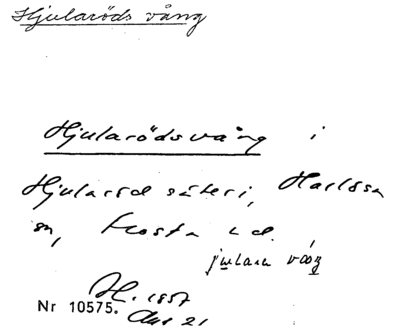 Hjularöds vång
Hjularödsvång i
Hjularöd säteri, Harlösa
sn, Frosta hd.
julara
H. 1857
Nr 10575. 21